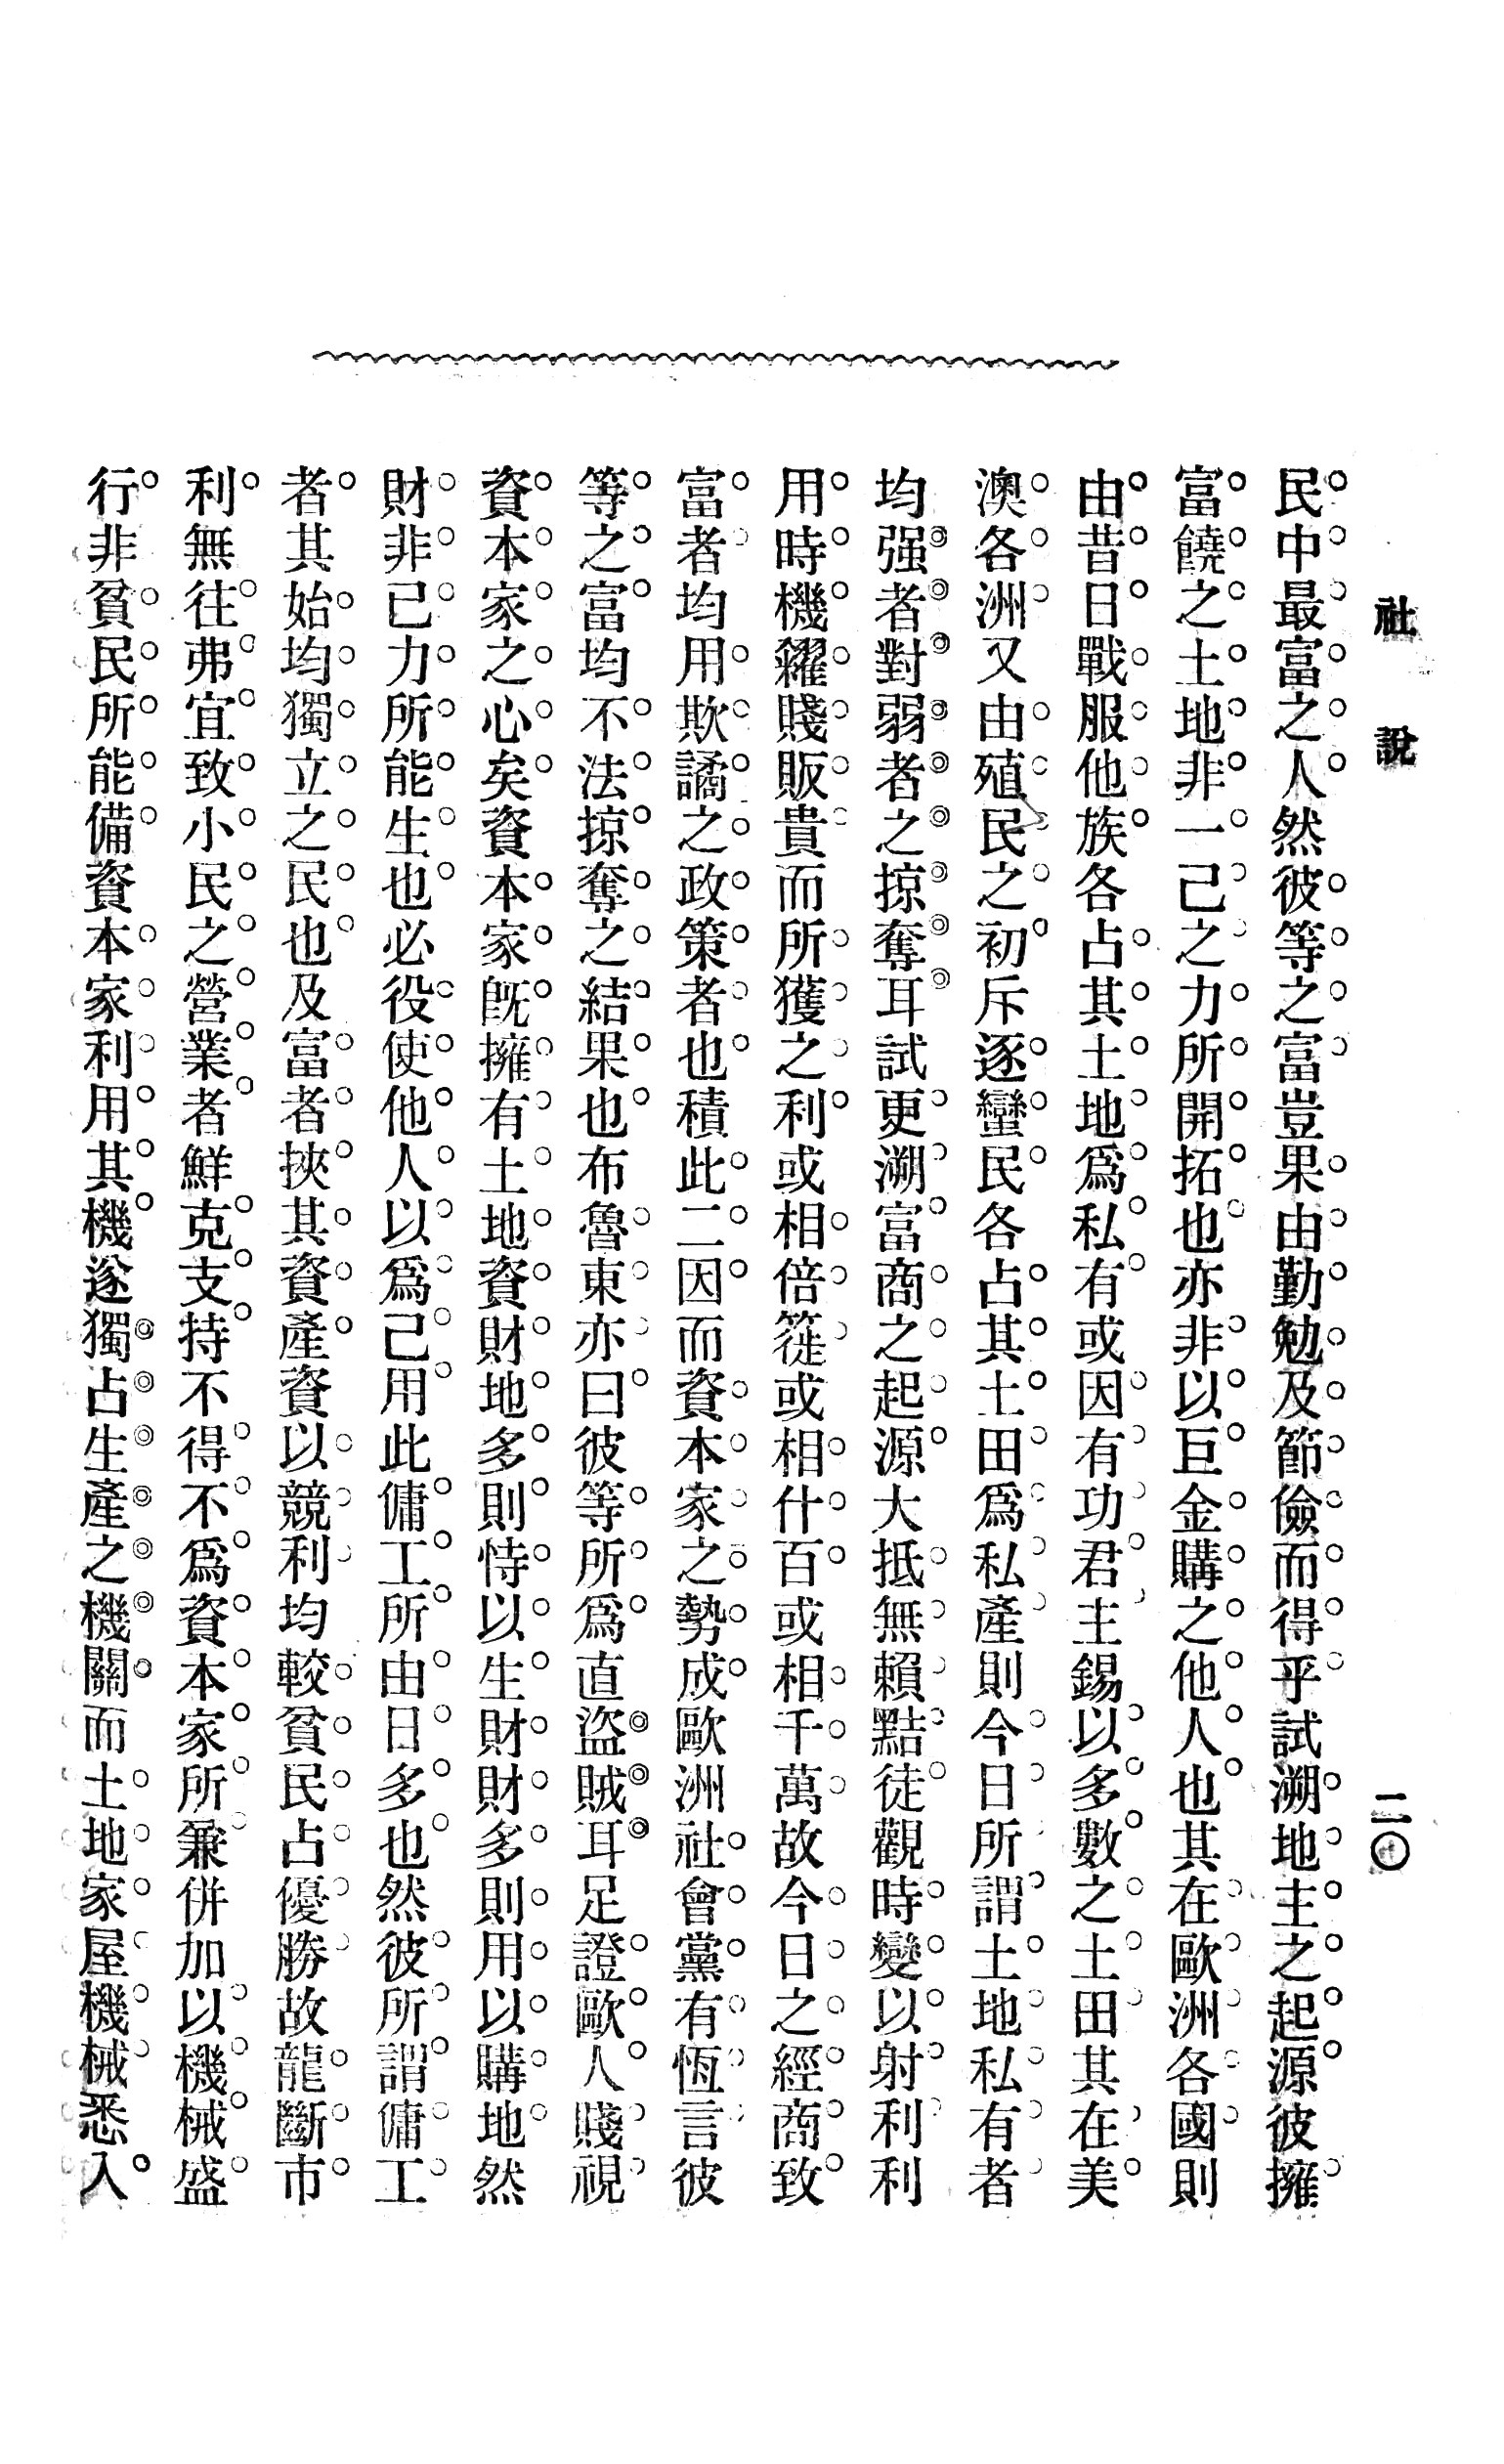 社說
二〇
民中最富之人然彼等之富豈果由勤勉及節儉而得乎試溯地主之起源彼擁
富饒之土地非一己之力所開拓也亦非以巨金購之他人也其在歐洲各國則
由昔日戰服他族各占其土地爲私有或因有功君主錫以多數之土田其在美
澳各洲又由殖民之初斥逐蠻民各占其土田爲私產則今日所謂土地私有者
均强者對弱者之掠奪耳試更溯富商之起源大抵無賴黠徒觀時變以射利利
用時機糴賤販貴而所獲之利或相倍簁或相什百或相千萬故今日之經商致
富者均用欺譎之政策者也積此二因而資本家之勢成歐洲社會黨有恆言彼
等之富均不法掠奪之結果也布魯東亦曰彼等所爲直盜賊耳足證歐人賤視
資本家之心矣資本家旣擁有土地資財地多則恃以生財財多則用以購地然
財非己力所能生也必役使他人以爲己用此傭工所由日多也然彼所謂傭工
者其始均獨立之民也及富者挾其資產資以競利均較貧民占優勝故龍斷市
利無往弗宜致小民之營業者鮮克支持不得不爲資本家所兼併加以機械盛
行非貧民所能備資本家利用其機遂獨占生產之機關而土地家屋機械悉入